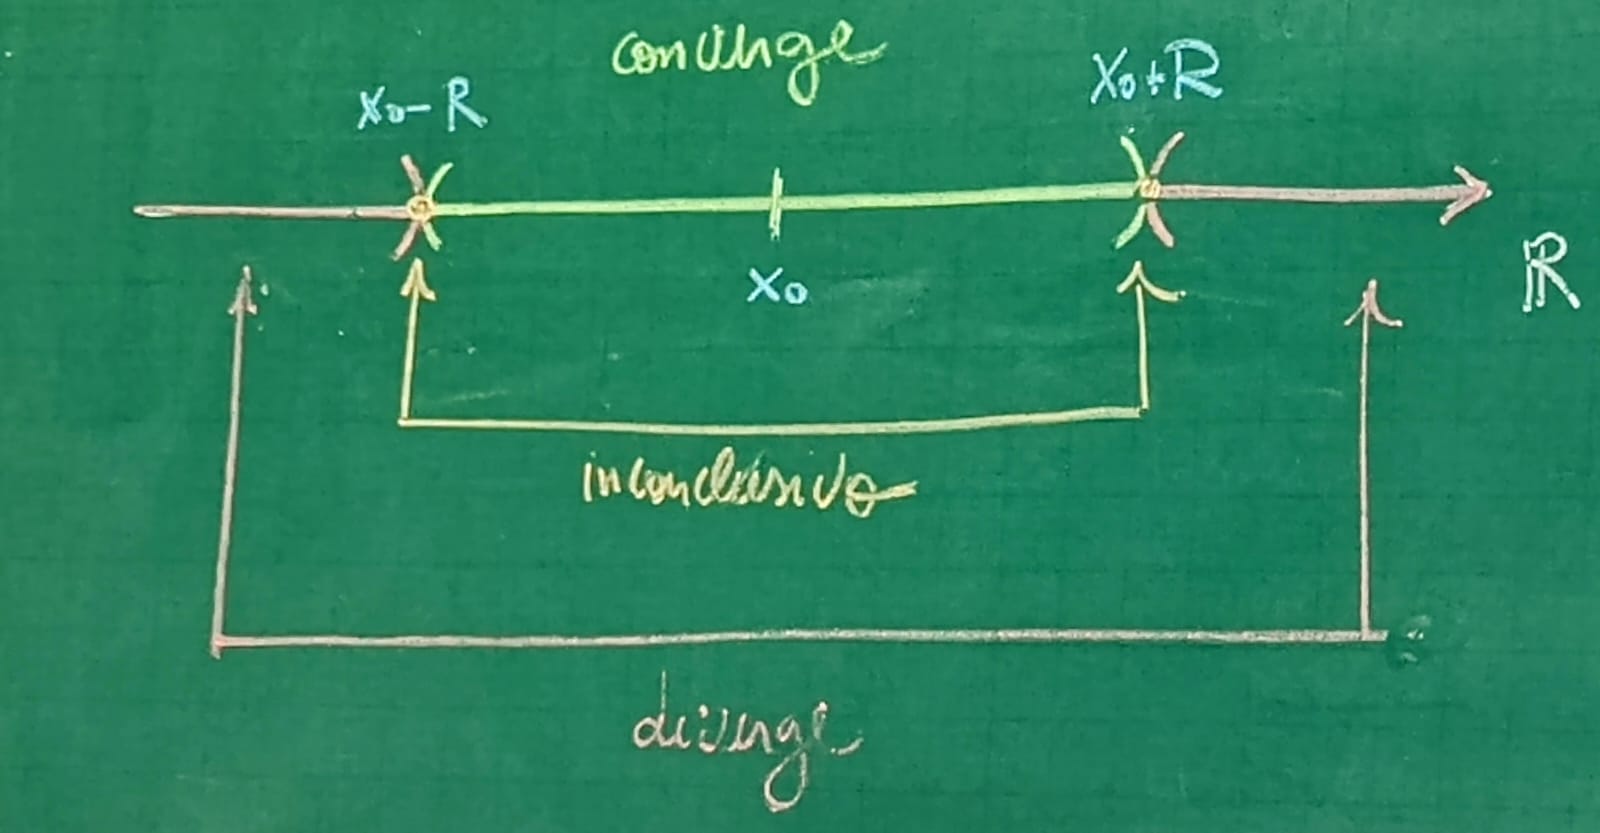 converge
x₀ - R
x₀ + R
x₀
ℝ
inconclusivo
diverge